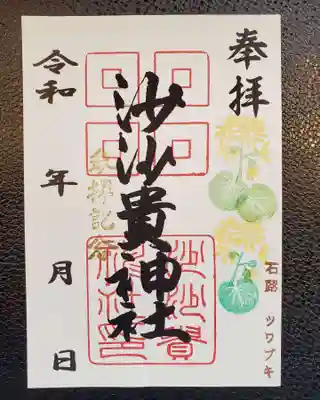 奉拝
石蕗 ツワブキ
沙沙貴神社
参拝記念
沙沙貴神社印
令和 年 月 日